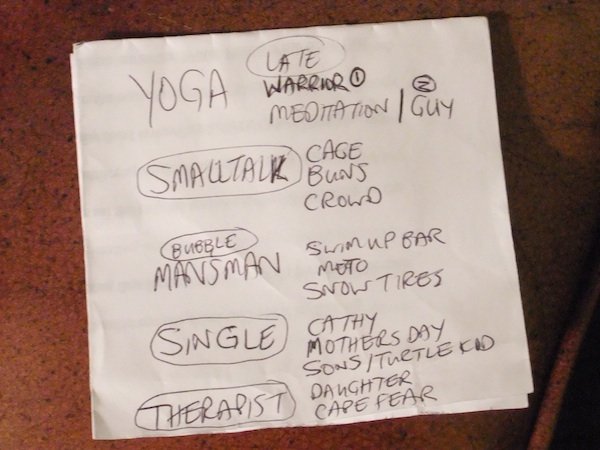 YOGA LATE
WARRIOR ①
MEDITATION / ② GUY
SMALLTALK CAGE
BUNS
CROWD
BUBBLE
MANSMAN SWIM UP BAR
MOTO
SNOW TIRES
SINGLE CATHY
MOTHERS DAY
SONS / TURTLE KID
THERAPIST DAUGHTER
CAPE FEAR